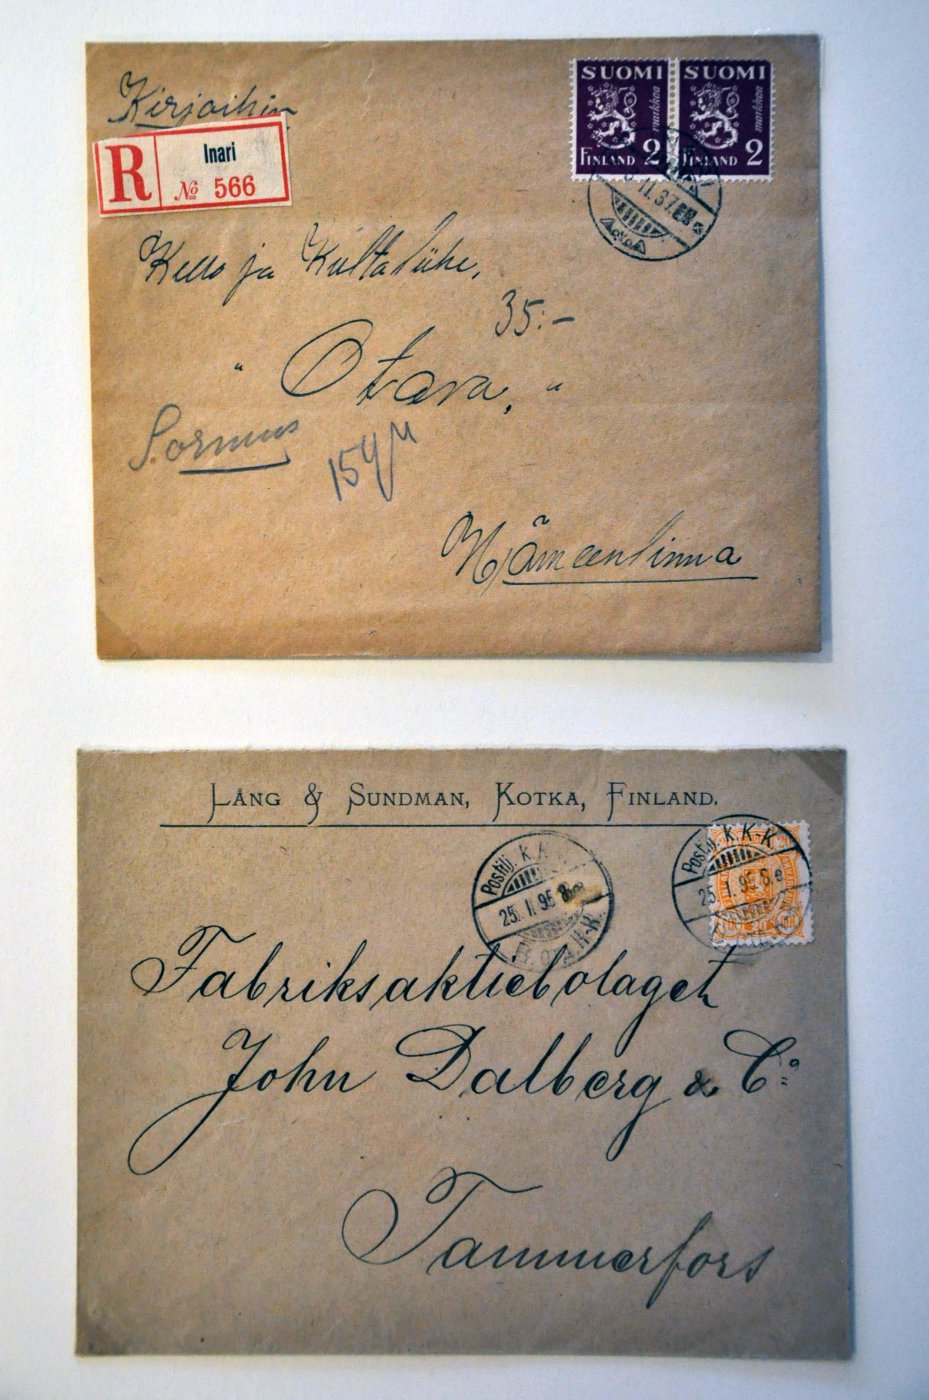 Kirjoihin
R
Inari
№ 566
SUOMI
markkaa
FINLAND 2
SUOMI
markkaa
FINLAND 2
II.37
Kello ja Kultaliike,
35:-
" Otava, "
Sormus
Hämeenlinna
LÅNG & SUNDMAN, KOTKA, FINLAND.
Postilj. K.
25. II 95 8
H.-K.
Postilj. K.K-K.
25. I. 95 8.e
Fabriksaktiebolaget
John Dalberg & Co
Tammerfors